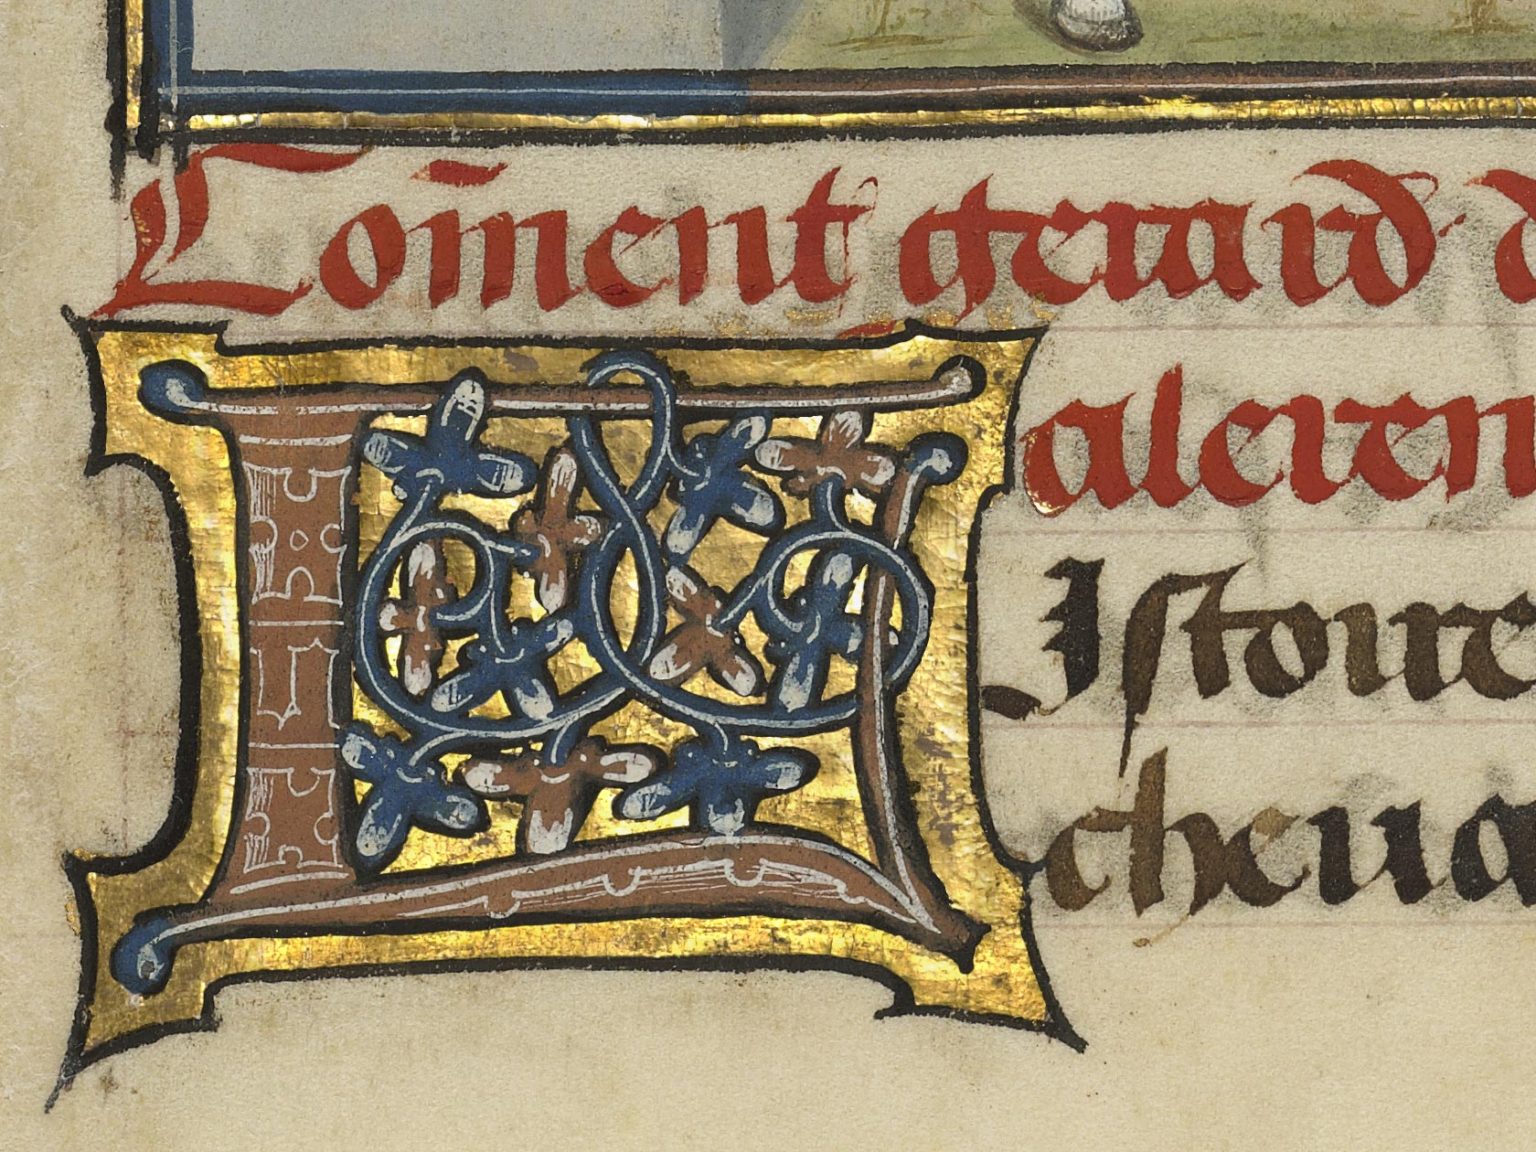 Com̄ent gerard d
aleren
L Istoire
cheua